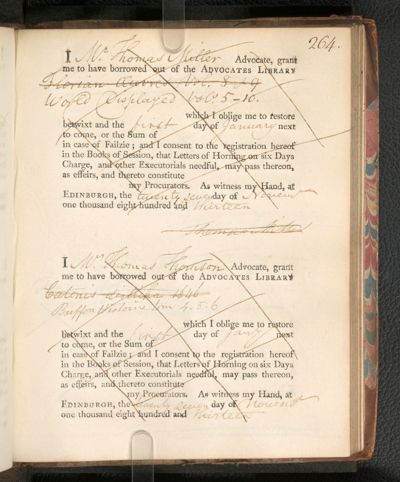 264.
I Mr. Thomas Miller Advocate, grant
me to have borrowed out of the ADVOCATES LIBRARY
Florian Vol.
World Displayed Vols 5-16.
which I oblige me to restore
betwixt and the first day of January next
to come, or the Sum of
in case of Failzie; and I consent to the registration hereof
in the Books of Session, that Letters of Horning on six Days
Charge, and other Executorials needful, may pass thereon,
as effeirs, and thereto constitute
my Procurators. As witness my Hand, at
EDINBURGH, the twenty seven day of Novem
one thousand eight hundred and thirteen
Thomas Miller
I Mr. Thomas Thomson Advocate, grant
me to have borrowed out of the ADVOCATES LIBRARY
Buffon 4.5.6
which I oblige me to restore
betwixt and the first day of Jany next
to come, or the Sum of
in case of Failzie; and I consent to the registration hereof
in the Books of Session, that Letters of Horning on six Days
Charge, and other Executorials needful, may pass thereon,
as effeirs, and thereto constitute
my Procurators. As witness my Hand, at
EDINBURGH, the twenty seven day of
one thousand eight hundred and thirteen